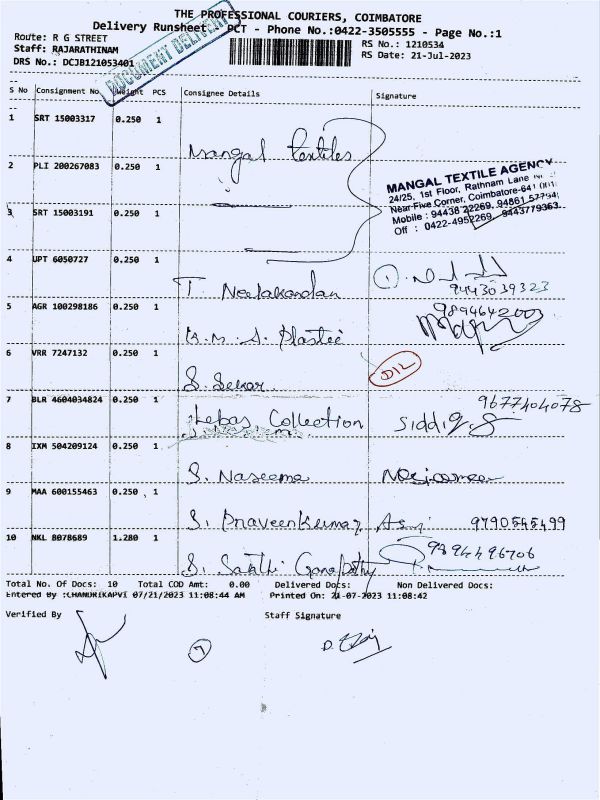 THE PROFESSIONAL COURIERS, COIMBATORE
Delivery Runsheet, PCT - Phone No.:0422-3505555 - Page No.:1
Route: R G STREET
RS No.: 1210534
Staff: RAJARATHINAM
RS Date: 21-Jul-2023
DRS No.: DCJB121053401
DOCUMENT DELIVERY
S No Consignment No. Weight PCS Consignee Details Signature
1 SRT 15003317 0.250 1
Mangal Textiles
2 PLI 200267083 0.250 1
MANGAL TEXTILE AGENCY
24/25, 1st Floor, Rathnam Lane
Near Five Corner, Coimbatore-641 001.
Mobile : 94438 22269, 94861 57794
Off : 0422-4952269, 9443779363
3 SRT 15003191 0.250 1
4 UPT 6050727 0.250 1
T. Neelakandan 9443039323
5 AGR 100298186 0.250 1
9894642003
S. Plastic
6 VRR 7247132 0.250 1
D12
S. Sekar
7 BLR 4604034824 0.250 1
9677404078
Lebas Collection Siddiq. S
8 IXM 504209124 0.250 1
S. Naseema
9 MAA 600155463 0.250 1
S. Praveenkumar 9790545499
10 NKL 8078689 1.280 1
9894496706
S. Sakthi Ganapathy
Total No. Of Docs: 10 Total COD Amt: 0.00 Delivered Docs: Non Delivered Docs:
Entered By :CHANDRIKAPVI 07/21/2023 11:08:44 AM Printed On: 21-07-2023 11:08:42
Verified By Staff Signature
7